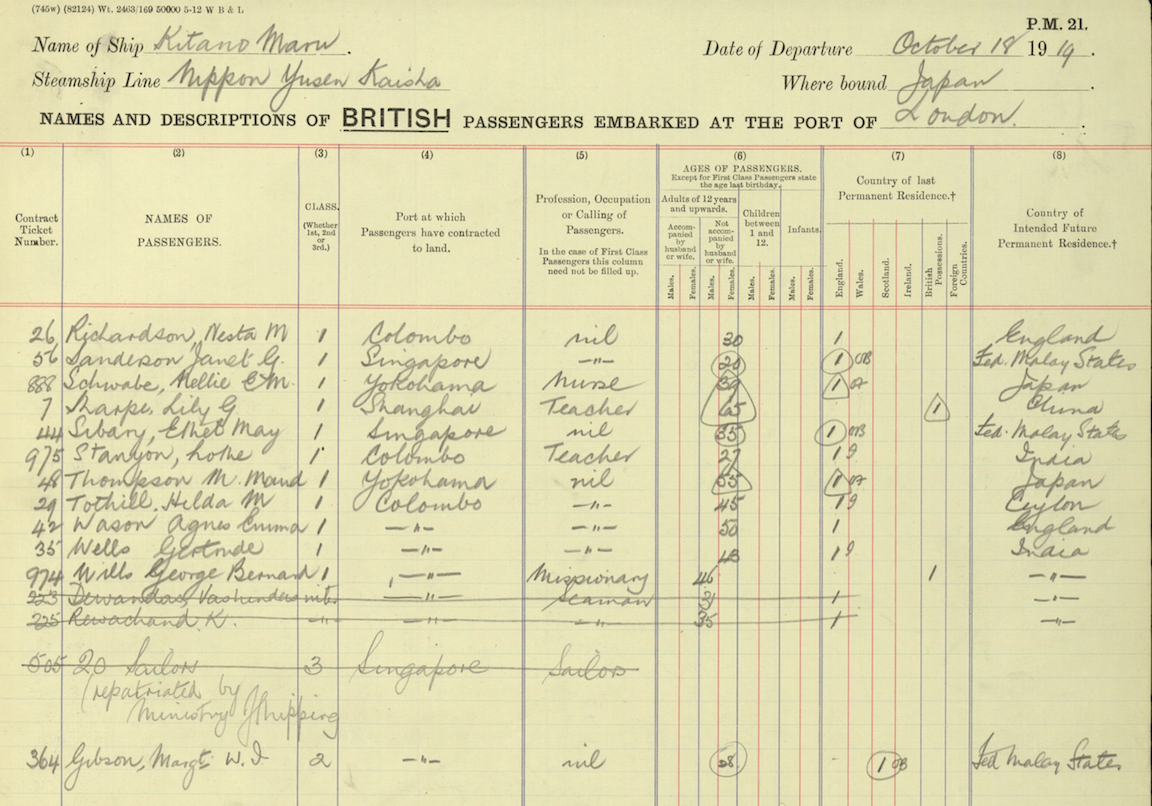 (745w) (82124) Wt. 2463/169 50000 5-12 W B & L
P.M. 21.
Name of Ship Kitano Maru. Date of Departure October 18 1919.
Steamship Line Nippon Yusen Kaisha Where bound Japan.
NAMES AND DESCRIPTIONS OF BRITISH PASSENGERS EMBARKED AT THE PORT OF London.
(1) (2) (3) (4) (5) (6) (7) (8)
Contract Ticket Number.
NAMES OF PASSENGERS.
CLASS. (Whether 1st, 2nd or 3rd.)
Port at which Passengers have contracted to land.
Profession, Occupation or Calling of Passengers.
In the case of First Class Passengers this column need not be filled up.
AGES OF PASSENGERS.
Except for First Class Passengers state the age last birthday.
Adults of 12 years and upwards.
Accompanied by husband or wife.
Not accompanied by husband or wife.
Children between 1 and 12.
Infants.
Males. Females. Males. Females. Males. Females. Males. Females.
Country of last Permanent Residence.†
England. Wales. Scotland. Ireland. British Possessions. Foreign Countries.
Country of Intended Future Permanent Residence.†
26 Richardson, Nesta M 1 Colombo nil 30 1 England
56 Sanderson Janet G. 1 Singapore —"— 1 OB Fed. Malay States
888 Schwabe, Nellie E.M. 1 Yokohama Nurse 1 Japan
7 Sharpe, Lily G 1 Shanghai Teacher 1 China
44 Sibary, Ethel May 1 Singapore nil 35 1 OB Fed. Malay States
975 Stanyon, 1 Colombo Teacher 27 1 9 India
48 Thompson M. Maud 1 Yokohama nil 55 1 Japan
29 Tothill, Hilda M 1 Colombo —"— 45 1 9 Ceylon
42 Wason Agnes Emma 1 —"— —"— 50 1 England
35 Wells Gertrude 1 —"— —"— 43 1 9 India
974 Wills George Bernard 1 —"— Missionary 46 1 —"—
223 Dewandas, —"— Seaman 1 —"—
225 Rewachand K. —"— —"— —"— 35 1 —"—
505 20 Sailors 3 Singapore Sailors
(repatriated by
Ministry of Shipping
364 Gibson, Margt. W. I 2 —"— nil 28 1 OB Fed Malay States